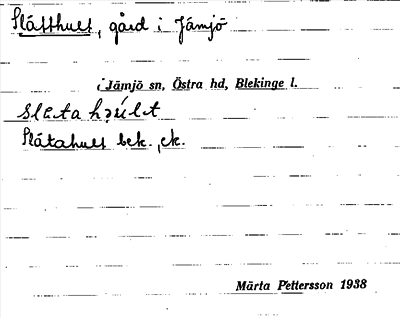 Slätthult, gård i Jämjö
i Jämjö sn, Östra hd, Blekinge l.
Slätahult bek. ck.
Märta Pettersson 1938